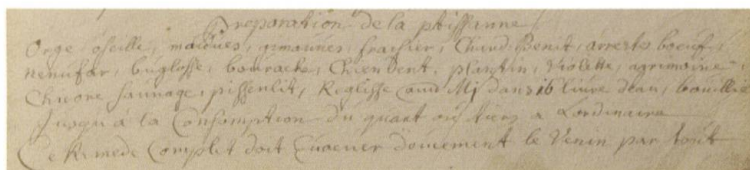 Preparation de la ptissanne
Orge, oseille, mauues, guimauues, fraisier, Chard Benit, arreste boeuf,
nenufar, buglosse, bourrache, Chiendent, plantin, violette, agrimoine,
Chicore sauvage, pissenlit, Reglisse dans 16 liure deau, bouillez
Jusqu'a la Consomption du quart ou tiers a Lordinaire
Ce Remede Complet doit Euacuer doucement le Venin par hault